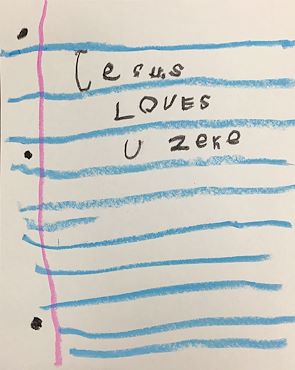 Jesus
LOVES
U Zeke